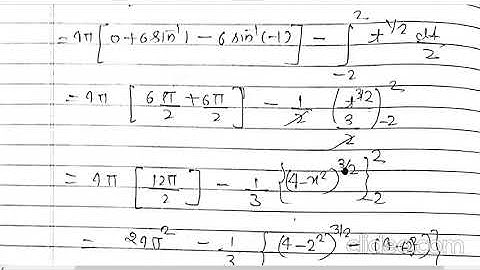 = 4π [0 + 6 sin⁻¹1 − 6 sin⁻¹(−1)] − ∫₋₂² t^(1/2) dt/2
= 4π [6π/2 + 6π/2] − 1/2 (t^(3/2)/(3/2))₋₂²
= 4π [12π/2] − 1/3 {(4−x²)^(3/2)}₋₂²
= 24π² − 1/3 {(4−2²)^(3/2) −